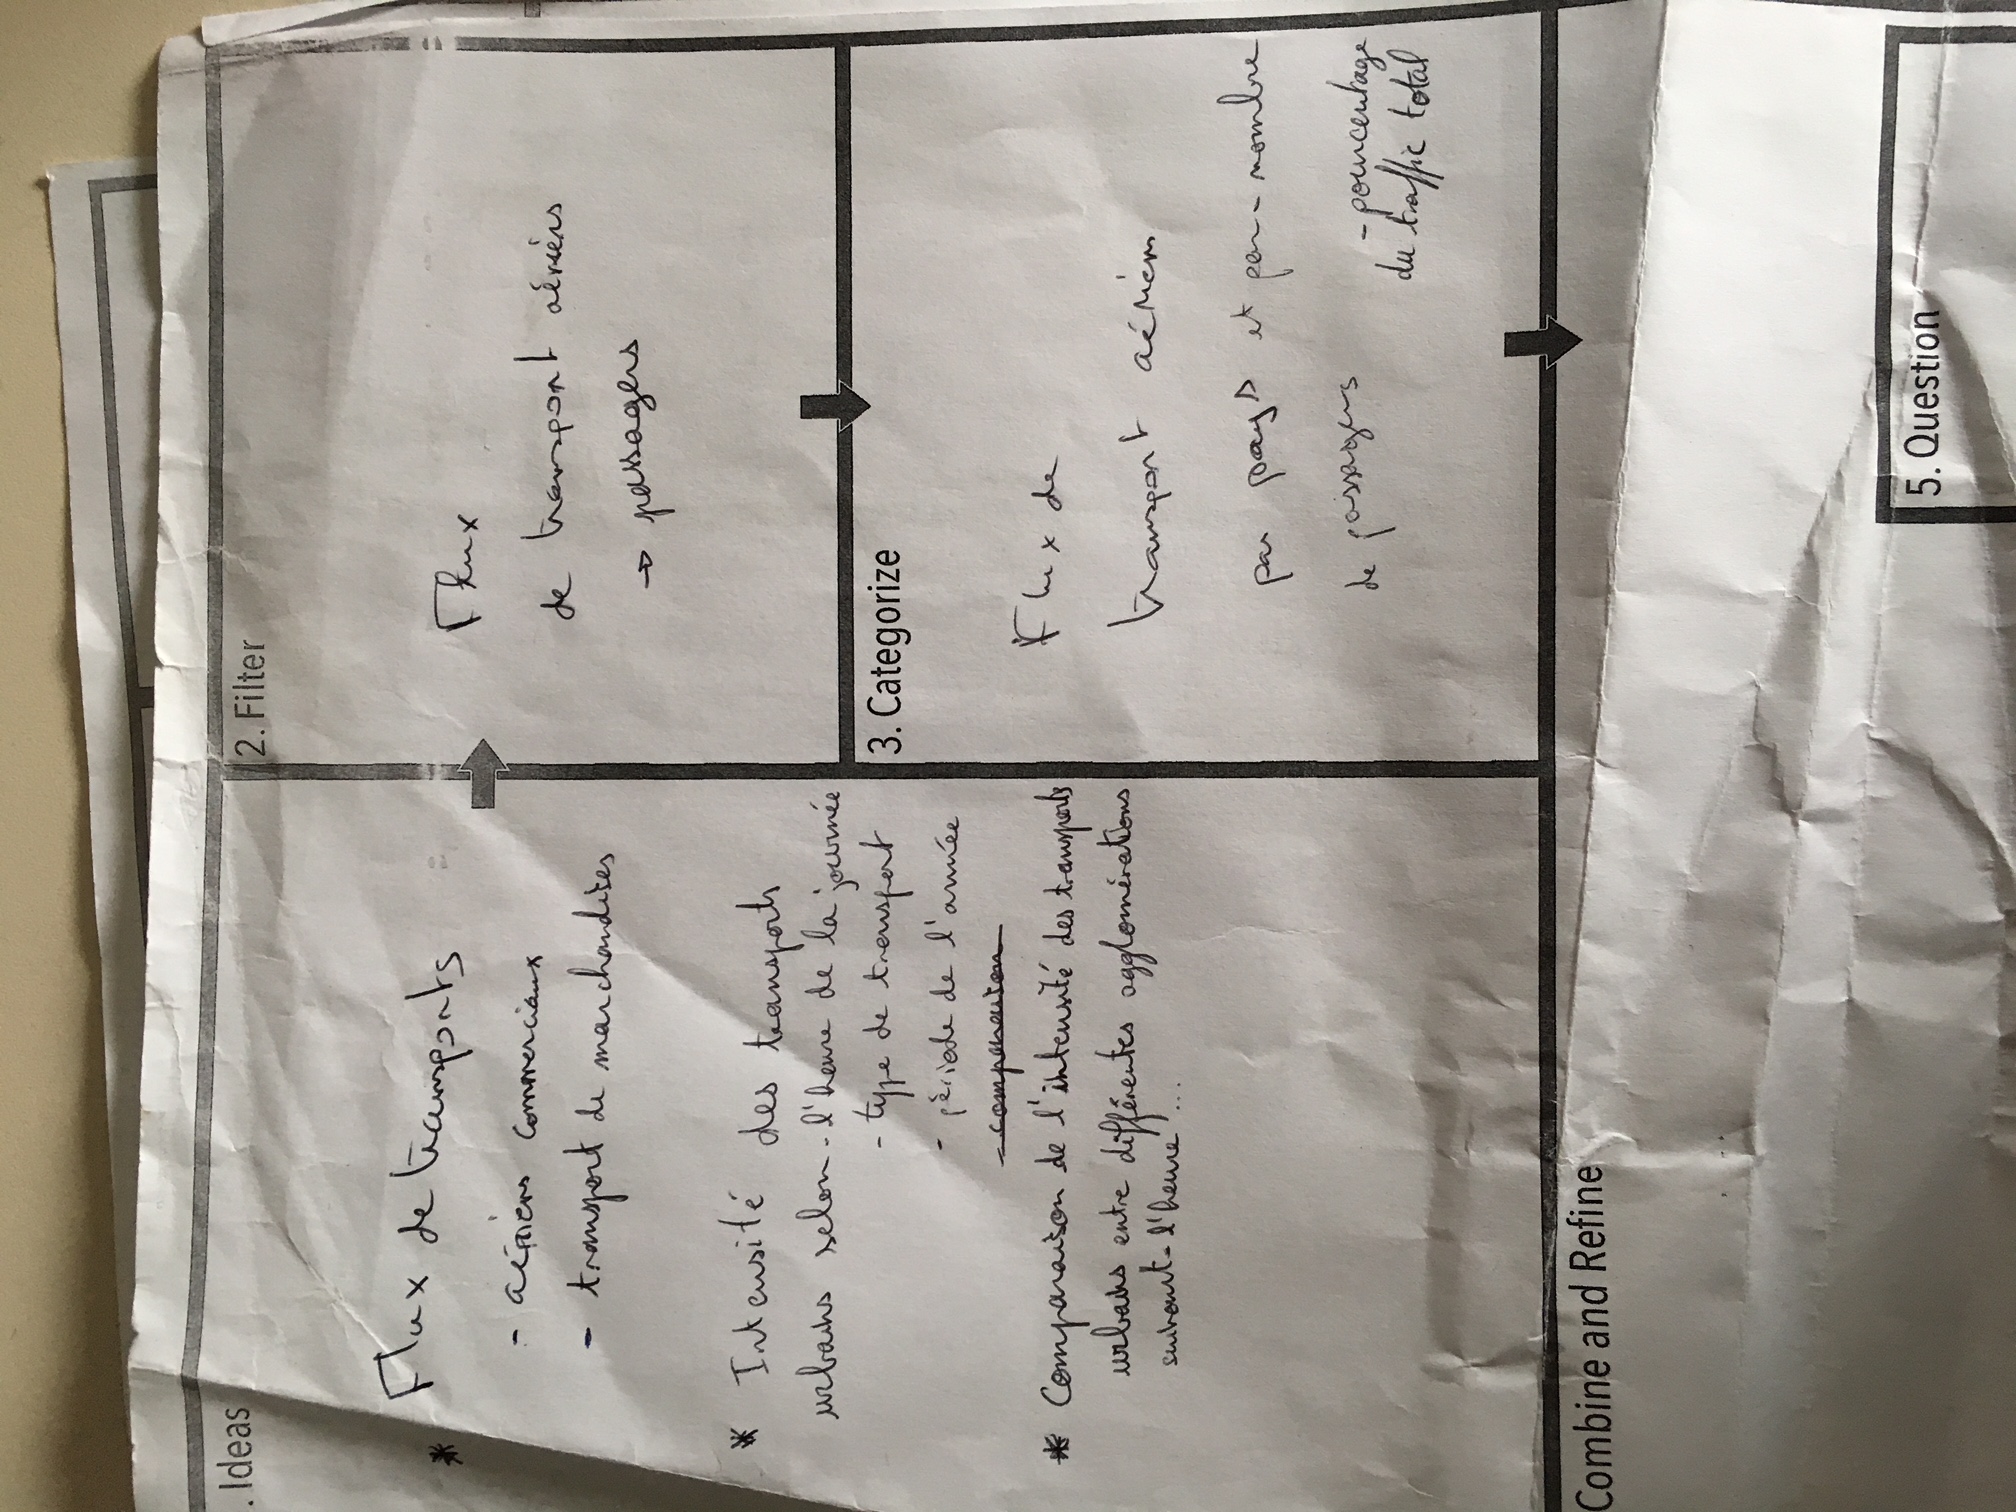 . Ideas
* Flux de transports
- aériens commerciaux
- transport de marchandises
* Intensité des transports
urbains selon - l'heure de la journée
- type de transport
- période de l'année
- comparaison
* Comparaison de l'intensité des transports
urbains entre différentes agglomérations
suivant l'heure ...
2. Filter
Flux
de transport aériens
→ passagers
3. Categorize
Flux de
transport aérien
par pays et par - nombre
de passagers
- pourcentage
du traffic total
Combine and Refine
5. Question